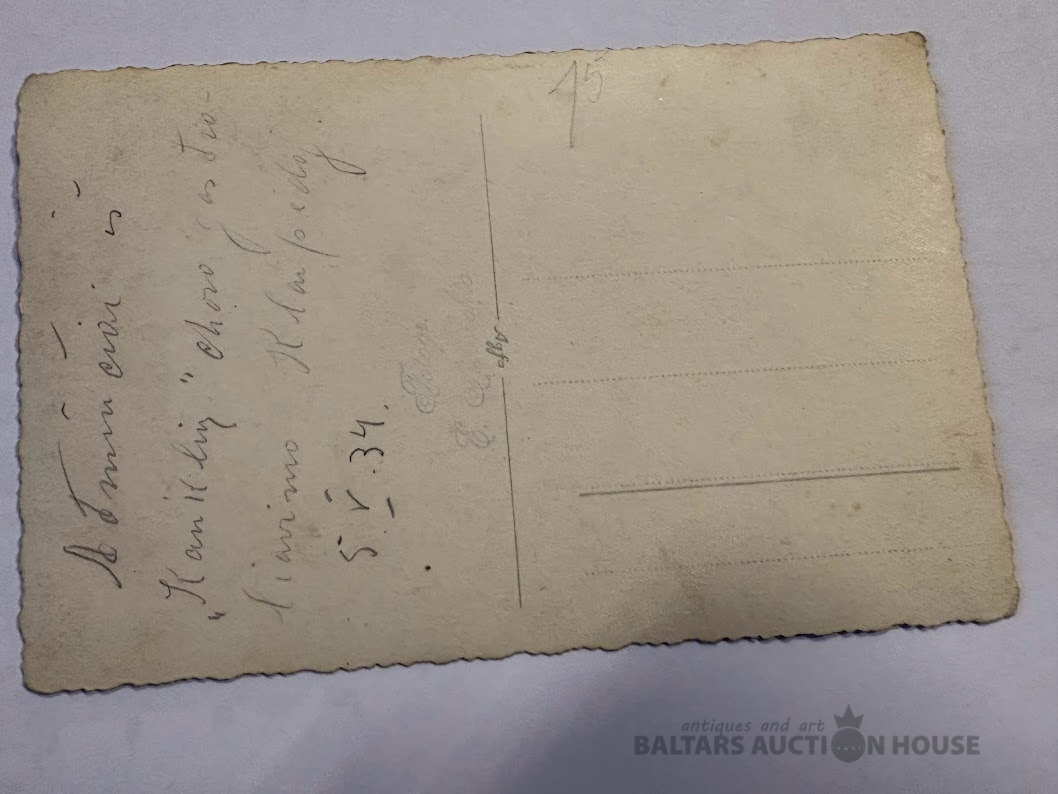 Atminčiai iš
„Kanklių" choro gastro-
liavimo Klaipėdoj.
5.V.34.
Foto
afbr
15
antiques and art
BALTARS AUCTION HOUSE